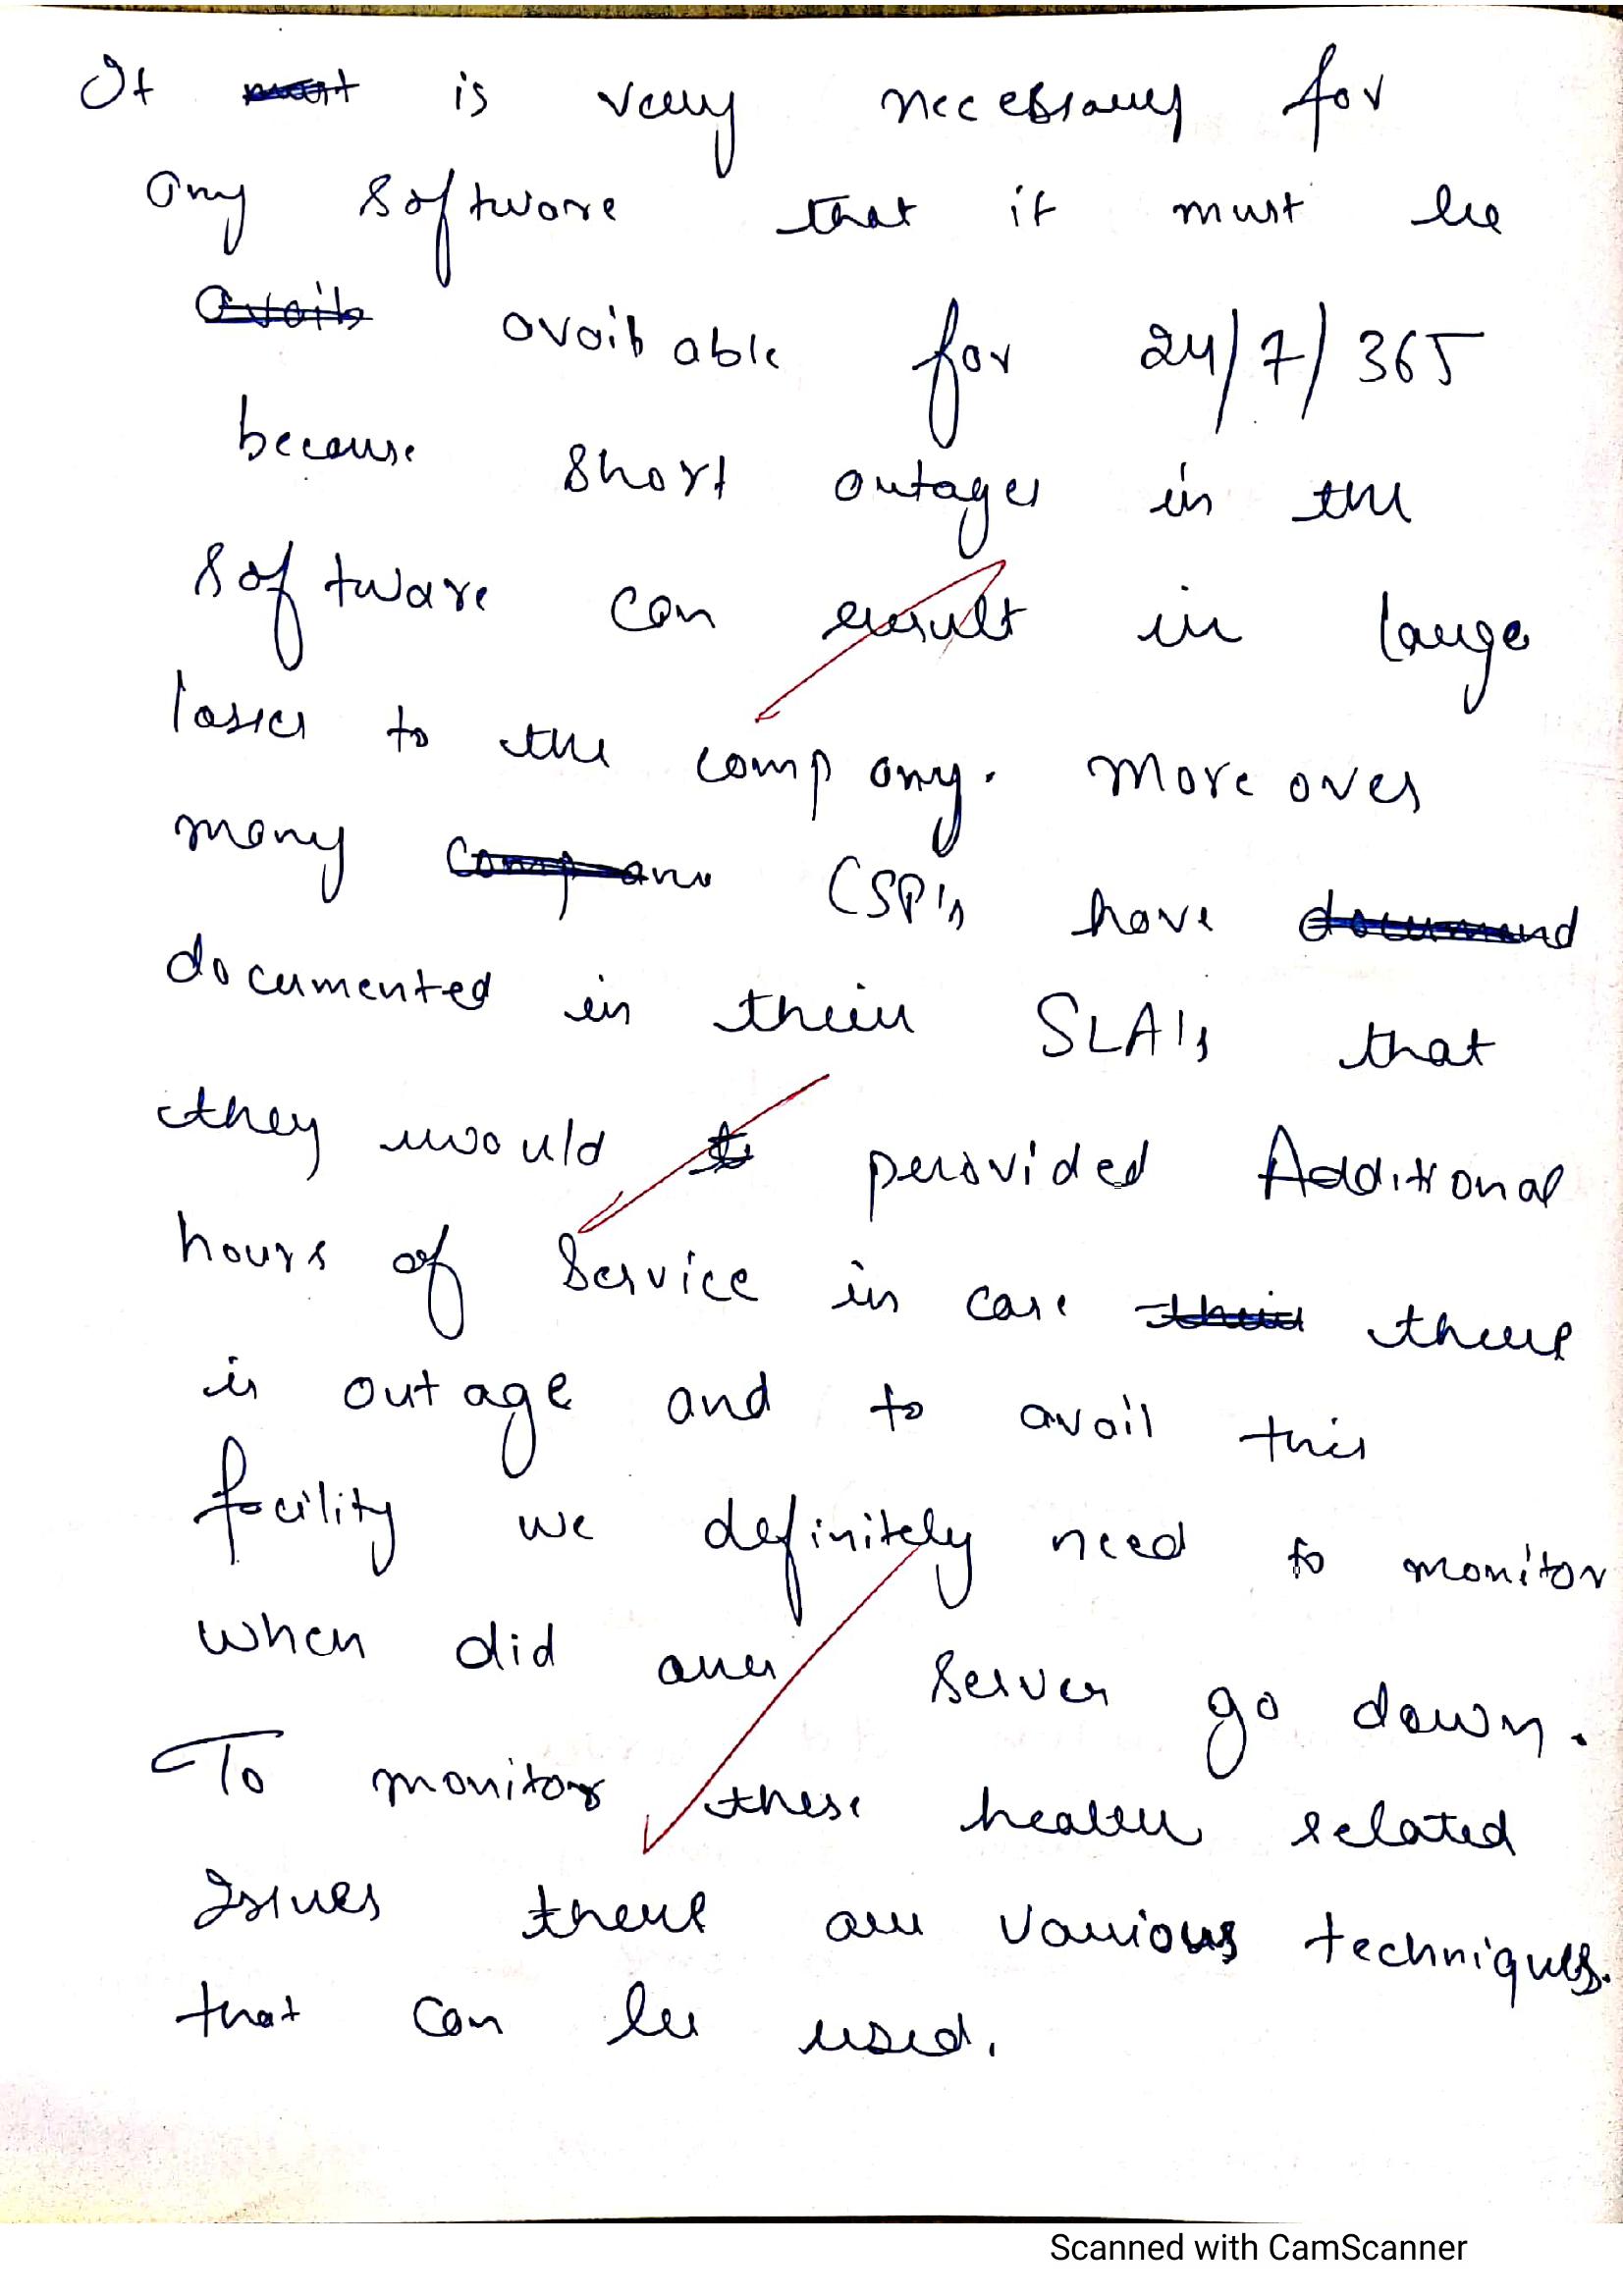 It must is very necessary for
any software that it must be
availa available for 24/7/365
because short outages in the
software can result in large
losses to the company. More over
many compan CSP's have documend
documented in their SLA's that
they would to provided Additional
hours of service in case their there
is outage and to avail this
facility we definitely need to monitor
when did our server go down.
To monitor these health related
Issues there are various techniques.
that can be used.
Scanned with CamScanner